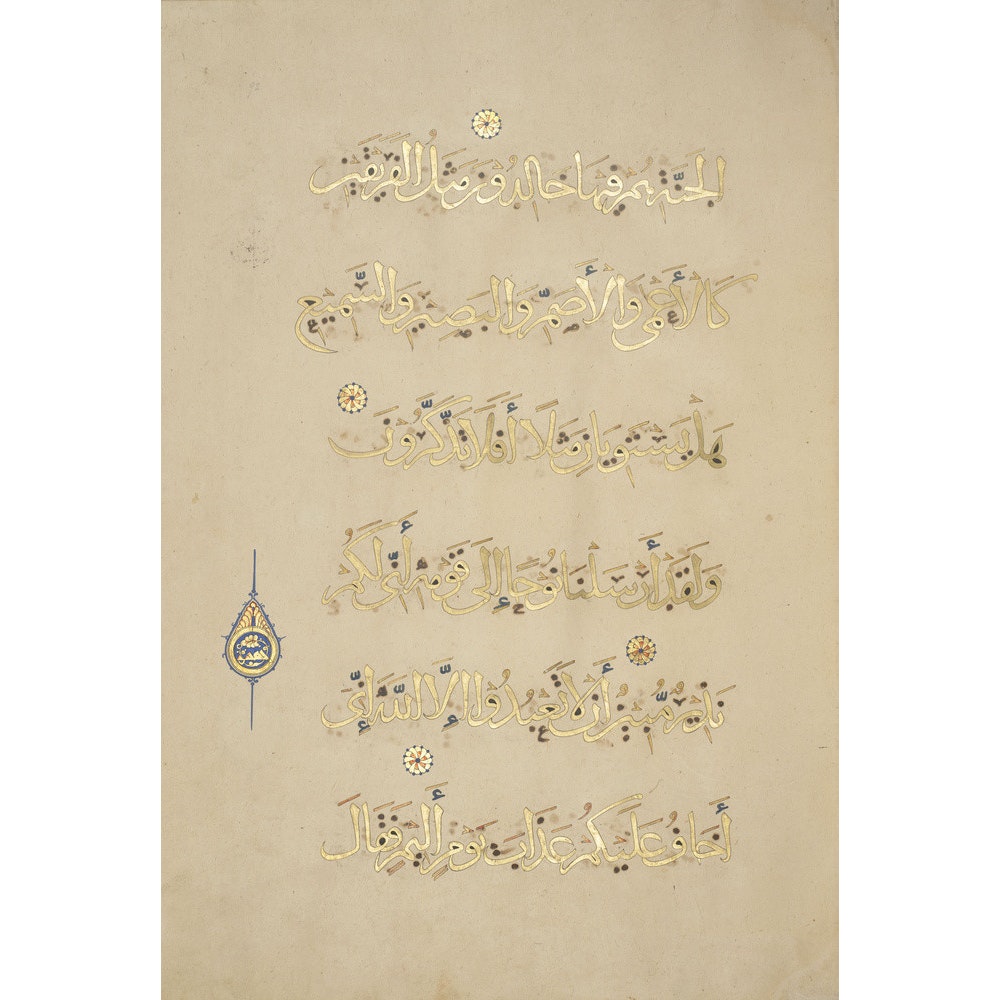 الْجَنَّةِ هُمْ فِيهَا خَالِدُونَ مَثَلُ الْفَرِيقَيْنِ
كَالْأَعْمَى وَالْأَصَمِّ وَالْبَصِيرِ وَالسَّمِيعِ
هَلْ يَسْتَوِيَانِ مَثَلًا أَفَلَا تَذَكَّرُونَ
وَلَقَدْ أَرْسَلْنَا نُوحًا إِلَى قَوْمِهِ أَنِّي لَكُمْ
نَذِيرٌ مُّبِينٌ أَن لَّا تَعْبُدُوا إِلَّا اللَّهَ إِنِّي
أَخَافُ عَلَيْكُمْ عَذَابَ يَوْمٍ أَلِيمٍ فَقَالَ